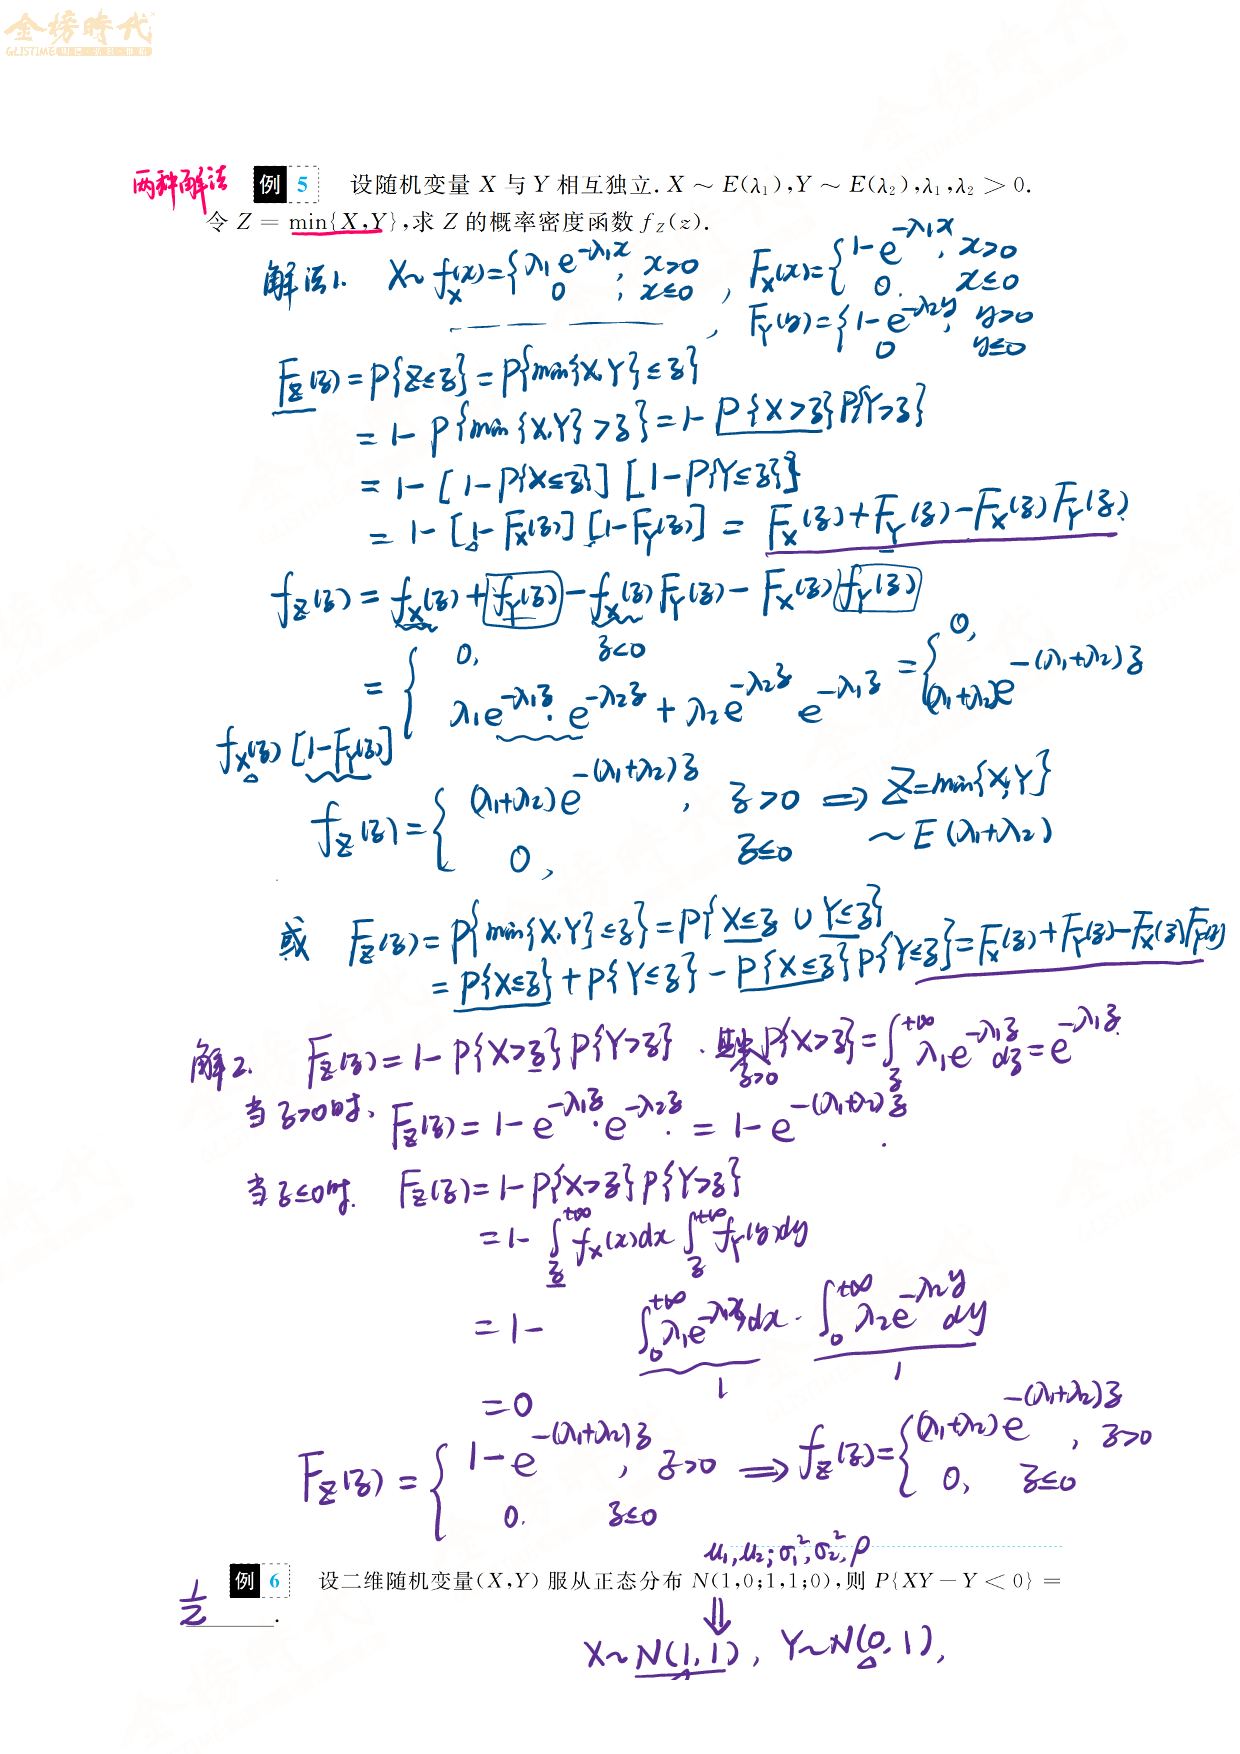 金榜時代
两种解法 例 5 设随机变量 X 与 Y 相互独立. X ~ E(λ₁),Y ~ E(λ₂),λ₁,λ₂ > 0.
令 Z = min{X,Y},求 Z 的概率密度函数 f_Z(z).
解法1. X~f_X(x)={λ₁e^{-λ₁x}, x>0; 0, x≤0 , F_X(x)={1-e^{-λ₁x}, x>0; 0. x≤0
, F_Y(y)={1-e^{-λ₂y}, y>0; 0 y≤0
F_Z(z)=P{Z≤z}=P{min{X,Y}≤z}
=1-P{min{X,Y}>z}=1-P{X>z}P{Y>z}
=1-[1-P{X≤z}][1-P{Y≤z}]
=1-[1-F_X(z)][1-F_Y(z)]=F_X(z)+F_Y(z)-F_X(z)F_Y(z)
f_Z(z)=f_X(z)+f_Y(z)-f_X(z)F_Y(z)-F_X(z)f_Y(z)
={0, z<0; λ₁e^{-λ₁z}·e^{-λ₂z}+λ₂e^{-λ₂z}e^{-λ₁z} ={0, (λ₁+λ₂)e^{-(λ₁+λ₂)z}
f_X(z)[1-F_Y(z)]
f_Z(z)={(λ₁+λ₂)e^{-(λ₁+λ₂)z}, z>0; 0, z≤0 ⇒ Z=min{X,Y}
~E(λ₁+λ₂)
或 F_Z(z)=P{min{X,Y}≤z}=P{X≤z∪Y≤z}
=P{X≤z}+P{Y≤z}-P{X≤z}P{Y≤z}=F_X(z)+F_Y(z)-F_X(z)F_Y(z)
解2. F_Z(z)=1-P{X>z}P{Y>z}. P{X>z}=∫_z^{+∞}λ₁e^{-λ₁z}dz=e^{-λ₁z}.
z>0
当z>0时, F_Z(z)=1-e^{-λ₁z}·e^{-λ₂z}.=1-e^{-(λ₁+λ₂)z}.
当z≤0时. F_Z(z)=1-P{X>z}P{Y>z}
=1-∫_z^{+∞}f_X(x)dx∫_z^{+∞}f_Y(y)dy
=1- ∫_0^{+∞}λ₁e^{-λ₁x}dx·∫_0^{+∞}λ₂e^{-λ₂y}dy
1 1
=0
F_Z(z)={1-e^{-(λ₁+λ₂)z}, z>0; 0. z≤0 ⇒ f_Z(z)={(λ₁+λ₂)e^{-(λ₁+λ₂)z}, z>0; 0, z≤0
μ₁,μ₂;σ₁²,σ₂²,ρ
例 6 设二维随机变量(X,Y) 服从正态分布 N(1,0;1,1;0),则 P{XY-Y<0} =
1/2.
⇓
X~N(1,1), Y~N(0,1),